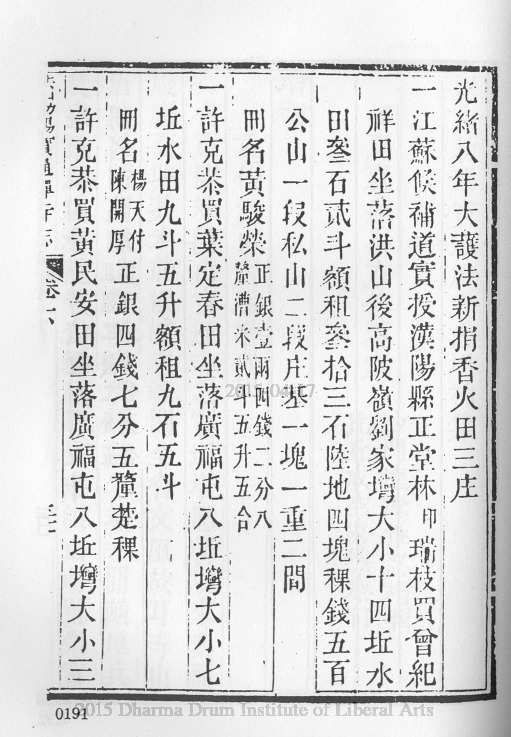 光緒八年大護法新捐香火田三庄
一江蘇候補道實授漢陽縣正堂林印瑞枝買曾紀
祥田坐落洪山後高陂嶺劉家壪大小十四坵水
田叄石貳斗額租叄拾三石陸地四塊稞錢五百
公山一段私山二段庄基一塊一重二間
冊名黃駿榮正銀壹兩四錢二分八釐漕米貳斗五升五合
一許克恭買葉定春田坐落廣福屯八坵壪大小七
坵水田九斗五升額租九石五斗
冊名楊天付陳開厚正銀四錢七分五釐楚稞
一許克恭買黃民安田坐落廣福屯八坵壪大小三
寶通禪寺志 卷六
2015/04/17
0191
2015 Dharma Drum Institute of Liberal Arts